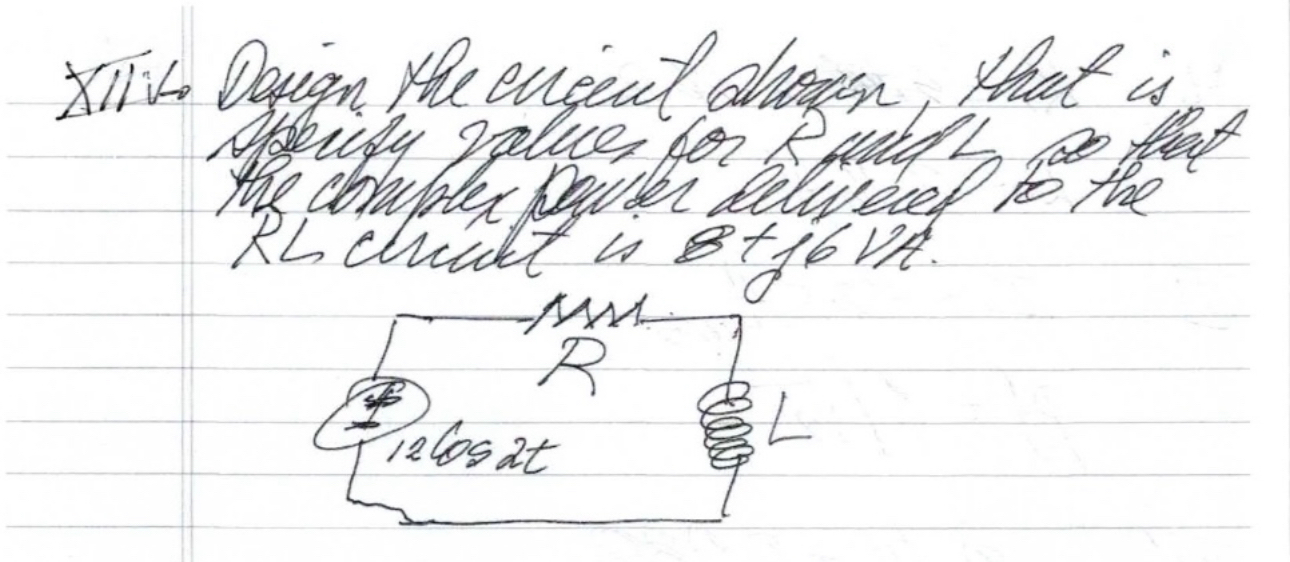 Design the circuit shown, that is
specify values for R and L so that
the complex power delivered to the
RL circuit is 8+j6 VA.
R
L
12 Cos 2t